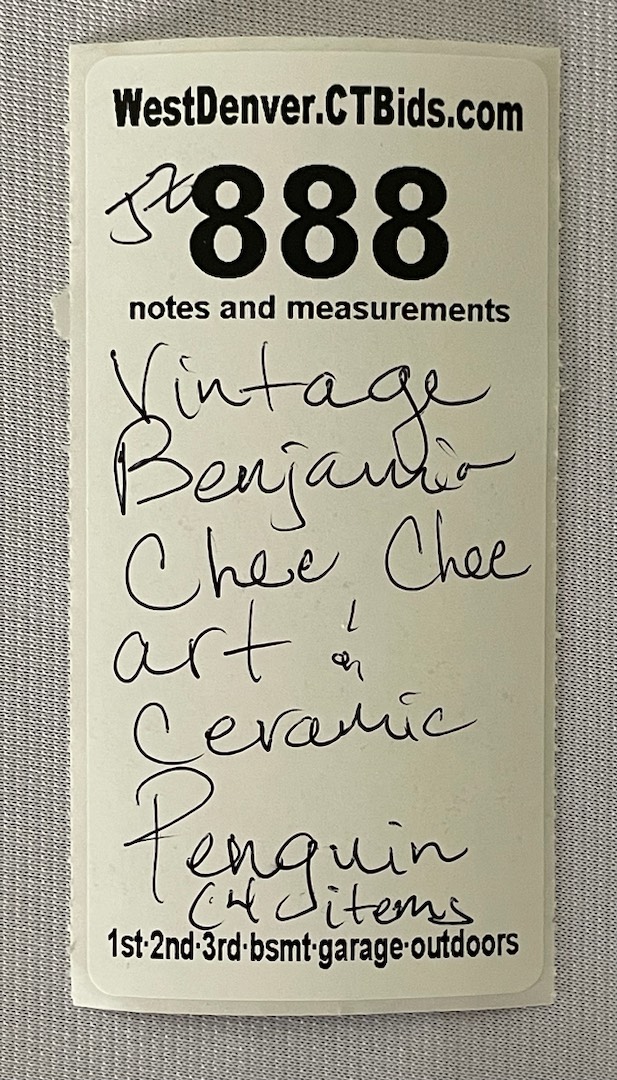 WestDenver.CTBids.com
888
notes and measurements
Vintage
Benjamin
Chee Chee
art &
Ceramic
Penguin
(4 items
1st·2nd·3rd·bsmt·garage·outdoors